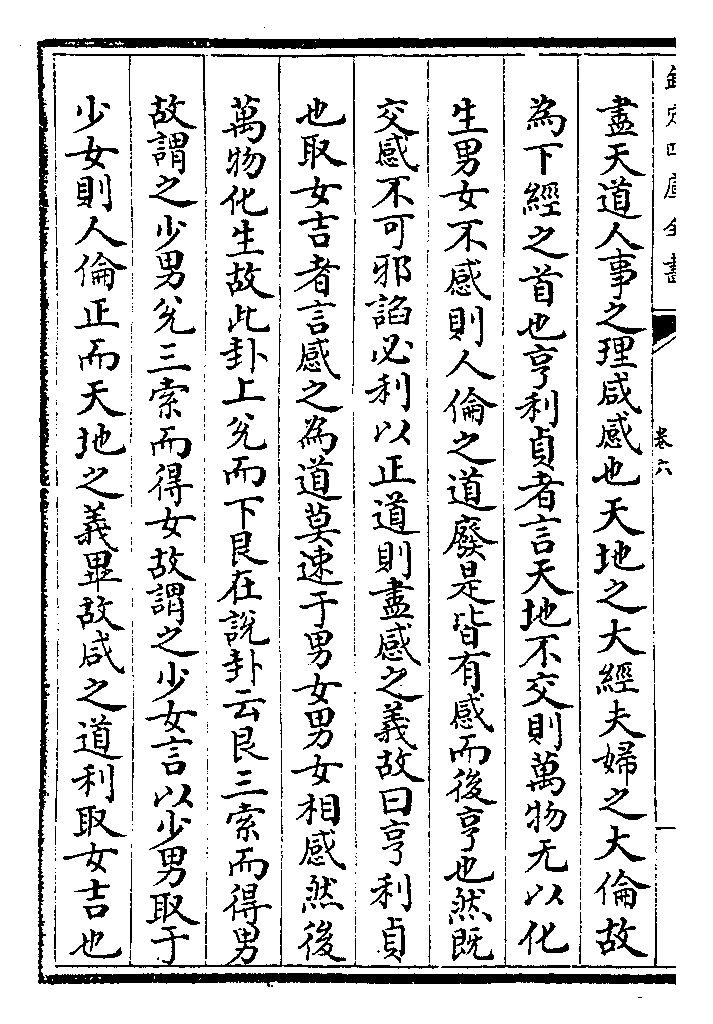 欽定四庫全書
卷六
盡天道人事之理咸感也天地之大經夫婦之大倫故
為下經之首也亨利貞者言天地不交則萬物无以化
生男女不感則人倫之道廢是皆有感而後亨也然既
交感不可邪諂必利以正道則盡感之義故曰亨利貞
也取女吉者言感之為道莫速于男女男女相感然後
萬物化生故此卦上兌而下艮在説卦云艮三索而得男
故謂之少男兌三索而得女故謂之少女言以少男取于
少女則人倫正而天地之義畢故咸之道利取女吉也